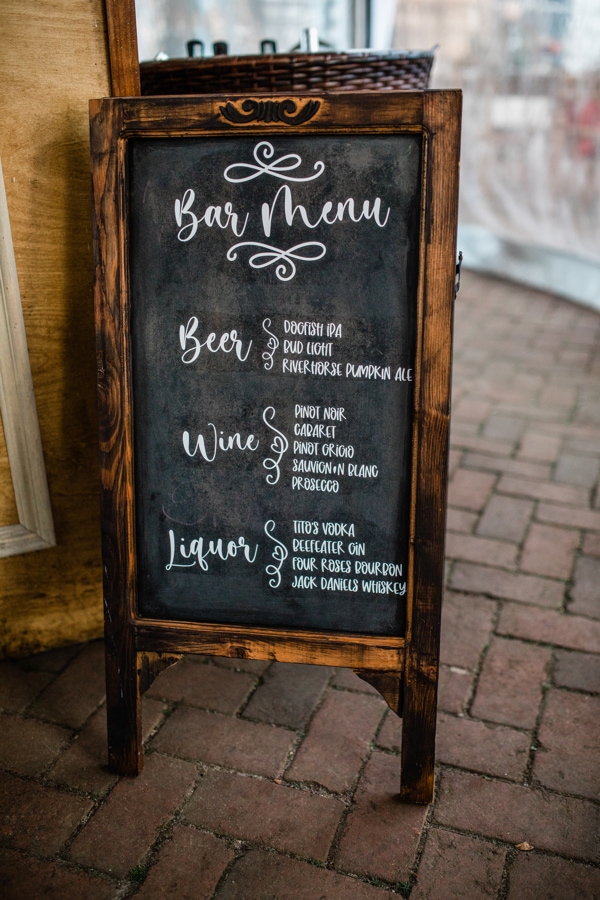 Bar Menu
Beer
DOGFISH IPA
BUD LIGHT
RIVERHORSE PUMPKIN ALE
Wine
PINOT NOIR
CABARET
PINOT GRIGIO
SAUVIGNON BLANC
PROSECCO
Liquor
TITO'S VODKA
BEEFEATER GIN
FOUR ROSES BOURBON
JACK DANIELS WHISKEY